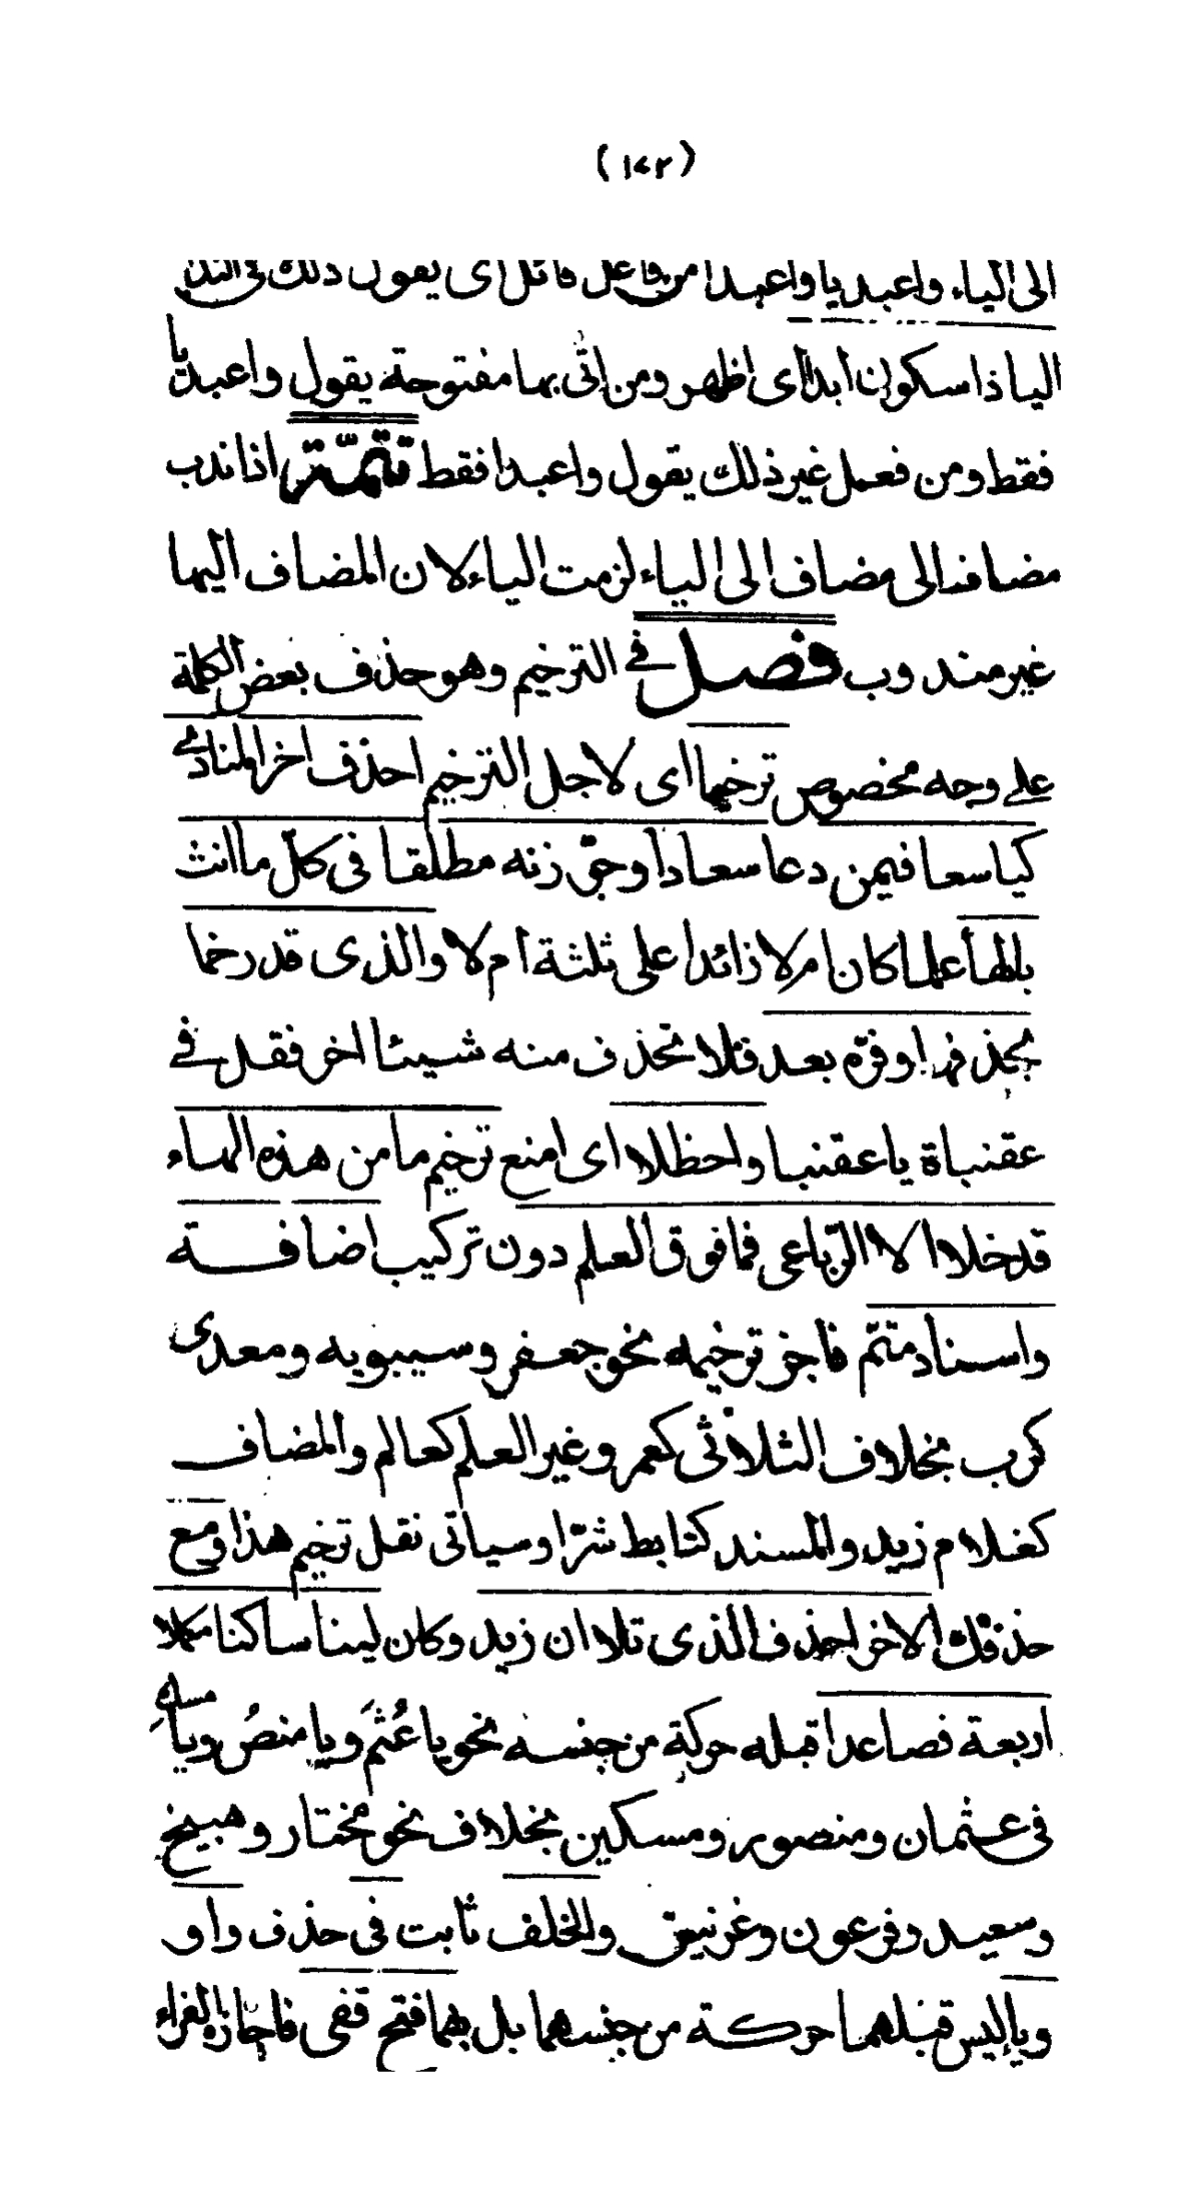 (١٤٢)
الى الياء واعبديا واعبدا من فاعل قائل اى يقول ذلك فى الندا
اليا ذا سكون ابدا اى اظهر ومن اتى بها مفتوحة يقول واعبديا
فقط ومن فعل غير ذلك يقول واعبدا فقط تتمّة اذا ندب
مضاف الى مضاف الى الياء لزمت الياء لان المضاف اليها
غير مندوب فصل فى الترخيم وهو حذف بعض الكلمة
على وجه مخصوص ترخيما اى لاجل الترخيم احذف اخر المنادى
كيا سعا فيمن دعا سعادا وجوّزنه مطلقا فى كلّ ما انث
بالها علما كان ام لا زائدا على ثلثة ام لا والذى قد رخما
بحذفها وفرّه بعد فلا تحذف منه شيئا اخر فقل فى
عقنباة يا عقنبا واحظلا اى امنع ترخيم ما من هذه الهاء
قد خلا الا الرّباعى فما فوق العلم دون تركيب اضافة
واسناد متمّ فاجز ترخيمه نحو جعفر وسيبويه ومعدى
كرب بخلاف الثلاثى كعمر وغير العلم كعالم والمضاف
كغلام زيد والمسند كتابط شرّا وسياتى نقل ترخيم هذا ومع
حذفك الاخر احذف الذى تلا ان زيد وكان لينا ساكنا مكملا
اربعة فصاعدا قبله حركة من جنسه نحو يا عُثمَ ويا منصُ ويا مسك
فى عثمان ومنصور ومسكين بخلاف نحو مختار وهبيخ
وسعيد وفرعون وغرنيق والخلف ثابت فى حذف واو
ويا ليس قبلهما حركة من جنسهما بل بهما فتح قفى فاجازه الفراء